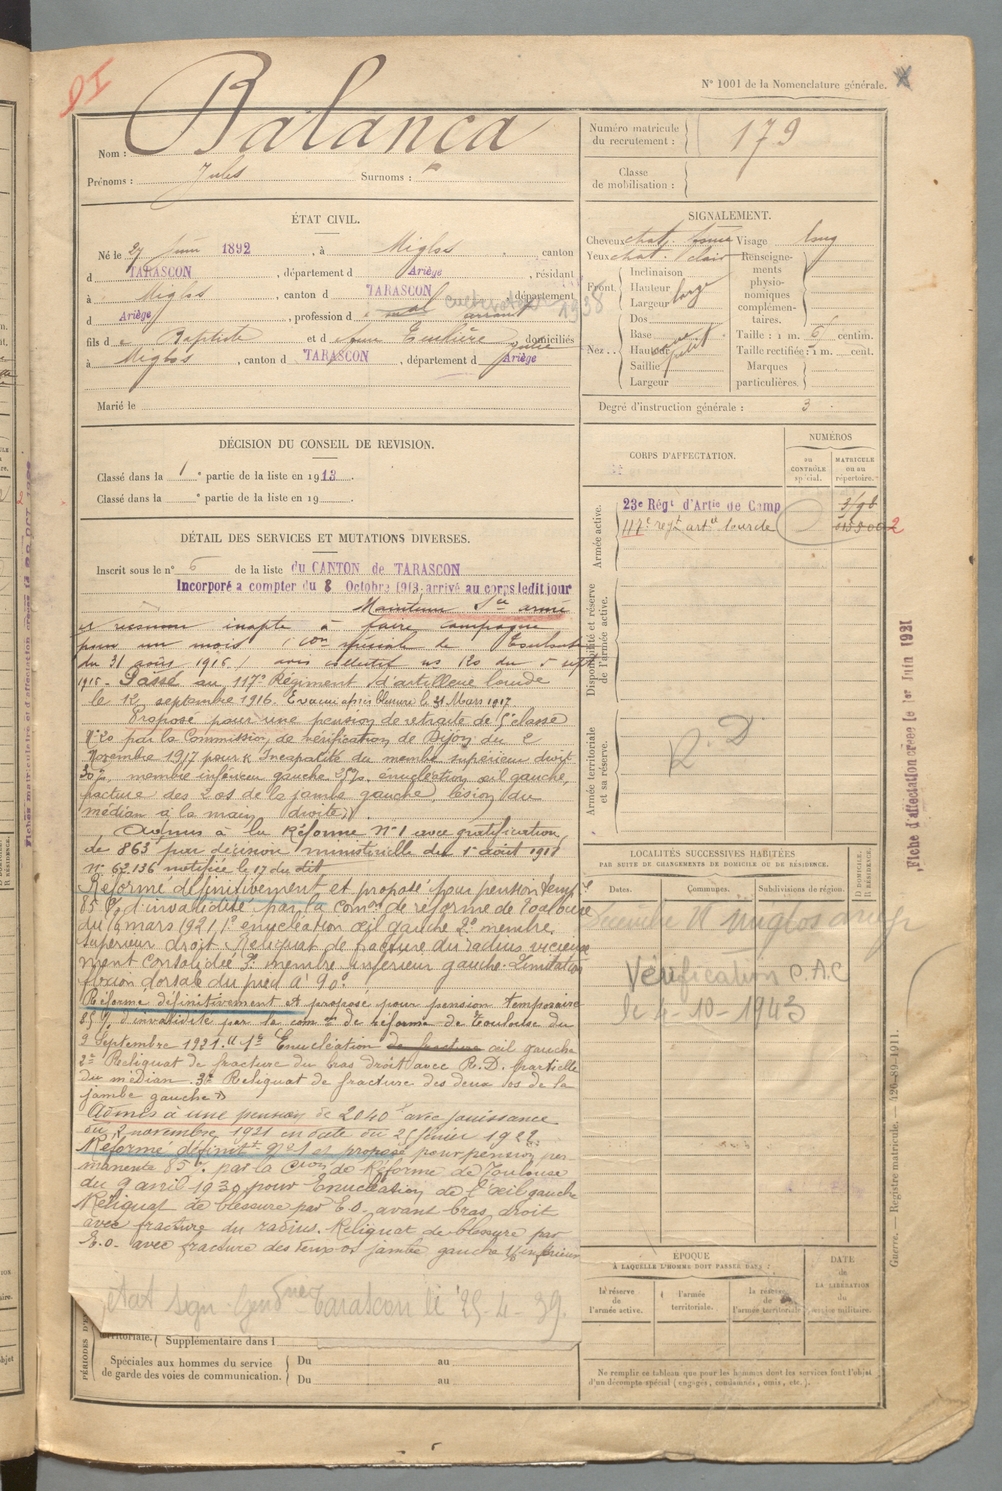 DI
N° 1001 de la Nomenclature générale.
Nom : Balança
Prénoms : Jules Surnoms : "
Numéro matricule du recrutement : 179
Classe de mobilisation :
ÉTAT CIVIL.
Né le 27 Juin 1892, à Miglos, canton
d TARASCON, département d Ariège, résidant
à Miglos, canton d TARASCON, département
d Ariège, profession d cultivateur 1938
fils d e Baptiste et d domiciliés
à Miglos, canton d TARASCON, département d Ariège
Marié le
SIGNALEMENT.
Cheveux chat. Visage long
Yeux chat. clair Renseignements physionomiques complémentaires.
Front. Inclinaison
Hauteur
Largeur large
Nez.. Dos
Base
Hauteur petit
Saillie
Largeur
Taille : 1 m. 6 centim.
Taille rectifiée : 1 m. cent.
Marques particulières.
Degré d'instruction générale : 3
DÉCISION DU CONSEIL DE REVISION.
Classé dans la 1e partie de la liste en 1913.
Classé dans la e partie de la liste en 19 .
DÉTAIL DES SERVICES ET MUTATIONS DIVERSES.
Inscrit sous le n° 6 de la liste du CANTON de TARASCON
Incorporé a compter du 8 Octobre 1913, arrivé au corps ledit jour
Maintenu Sce armé
et reconnu inapte à faire campagne
pour un mois (con spéciale de Toulouse
du 31 août 1916) avis collectif no 120 du 5 sept
1916. Passé au 117e Régiment d'artillerie lourde
le 12 septembre 1916. Evacué après blessure le 31 Mars 1917.
Proposé pour une pension de retraite de 5e classe
par la Commission de vérification de Dijon du 2
Novembre 1917 pour « Incapalité du membre supérieur droit
30%. membre inférieur gauche énucléation œil gauche,
fracture des 2 os de la jambe gauche, lésion du
médian à la main droite ».
Admis à la Réforme N°1 avec gratification
de 863 par décision ministérielle du 1er août 1918
N° 62.136 notifiée le 17 du dit
Réformé définitivement et proposé pour pension tempre
85 % d'invalidité par la comon de réforme de Toulouse
du 16 mars 1921, 1° énucléation œil gauche 2° membre
supérieur droit Reliquat de fracture du radius vicieuse
ment consolidée 3° membre inférieur gauche. Limitation
flexion dorsale du pied à 90°.
Réformé définitivement et proposé pour pension temporaire
85 % d'invalidité par la comon de réforme de Toulouse du
9 Septembre 1921 « 1° Enucléation de fracture œil gauche
2° Reliquat de fracture du bras droit avec R.D. partielle
du médian. 3° Reliquat de fracture des deux os de la
jambe gauche »
Admis à une pension de 2040 f avec jouissance
du 2 novembre 1921 en date du 25 février 1922.
Réformé définitt n°1 et proposé pour pension per-
manente 85 % par la Cion de Réforme de Toulouse
du 9 avril 1930 pour Enucléation de l'œil gauche
Reliquat de blessure par E.O. avant bras droit
avec fracture du radius. Reliquat de blessure par
E.O. avec fracture des deux os jambe gauche 1/3 inférieur
état sign Gendrie Tarascon le 25-4-39.
territoriale. Supplémentaire dans l
PÉRIODES D'
Spéciales aux hommes du service de garde des voies de communication. Du au
Du au
CORPS D'AFFECTATION.
NUMÉROS
au CONTRÔLE spécial.
MATRICULE ou au répertoire.
Armée active.
23e Régt d'Artie de Camp
117e regt artie lourde
Disponibilité et réserve de l'armée active.
Armée territoriale et sa réserve.
R. D
LOCALITÉS SUCCESSIVES HABITÉES
PAR SUITE DE CHANGEMENTS DE DOMICILE OU DE RÉSIDENCE.
Dates. Communes. Subdivisions de région. D DOMICILE. R RÉSIDENCE.
Vérification C.A.C
le 4-10-1943
EPOQUE
À LAQUELLE L'HOMME DOIT PASSER DANS :
la réserve de l'armée active.
l'armée territoriale.
la réserve de l'armée territoriale
DATE de LA LIBÉRATION du service militaire.
Ne remplir ce tableau que pour les hommes dont les services font l'objet d'un décompte spécial (engagés, condamnés, omis, etc.).
Fiche d'affectation créée le 1er Juin 1921
Guerre. — Registre matricule. — 426-89-1911.